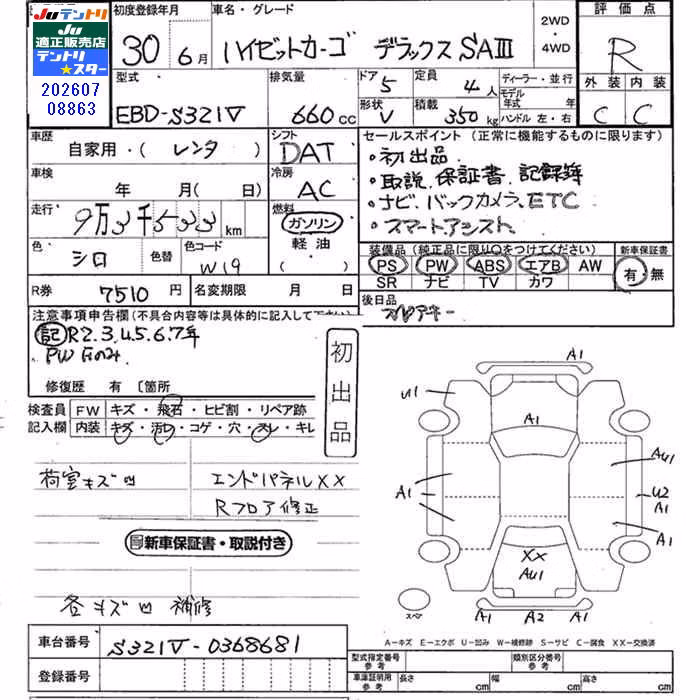 Juテントリ
Ju
適正販売店
テントリ
★スター
202607
08863
初度登録年月
30年 6月
車名・グレード
ハイゼットカーゴ デラックスSAⅢ
2WD
・
4WD
評価点
R
外装 内装
C C
型式
EBD-S321V
排気量
660cc
ドア 5
定員 4人
形状 V
積載 350kg
ディーラー・並行
モデル
年式 年
ハンドル 左・右
車歴
自家用・(レンタ)
シフト
DAT
車検
年 月(日)
冷房
AC
走行
9万3千533km
燃料
ガソリン
軽油
( )
色
シロ
色替
色コード
W19
R券 7510円
名変期限 月 日
セールスポイント(正常に機能するものに限ります)
・初出品
・取説、保証書、記録簿
・ナビ、バックカメラ、ETC
・スマートアシスト
装備品(純正品に限り○をつけてください)
PS PW ABS エアB AW
SR ナビ TV カワ
新車保証書
有・無
後日品
注意事項申告欄(不具合内容等は具体的に記入して下さい)
記R2.3.4.5.6.7年
PW Fのみ
修復歴 有 〔箇所
初出品
検査員
記入欄
FW キズ・飛石・ヒビ割・リペア跡
内装 キズ・汚れ・コゲ・穴・スレ・キレ
荷室キズ凹
エンドパネルXX
Rフロア修正
新車保証書・取説付き
各キズ凹 補修
車台番号 S321V-0368681
登録番号
A1
U1
A1
A1
AU1
U2
A1
A1
XX
AU1
スペア
A1 A2 A1
A-キズ E-エクボ U-凹み W-補修跡 S-サビ C-腐食 XX-交換済
型式指定番号
参考
類別区分番号
参考
車庫証明用
参考
長さ cm 幅 cm 高さ cm